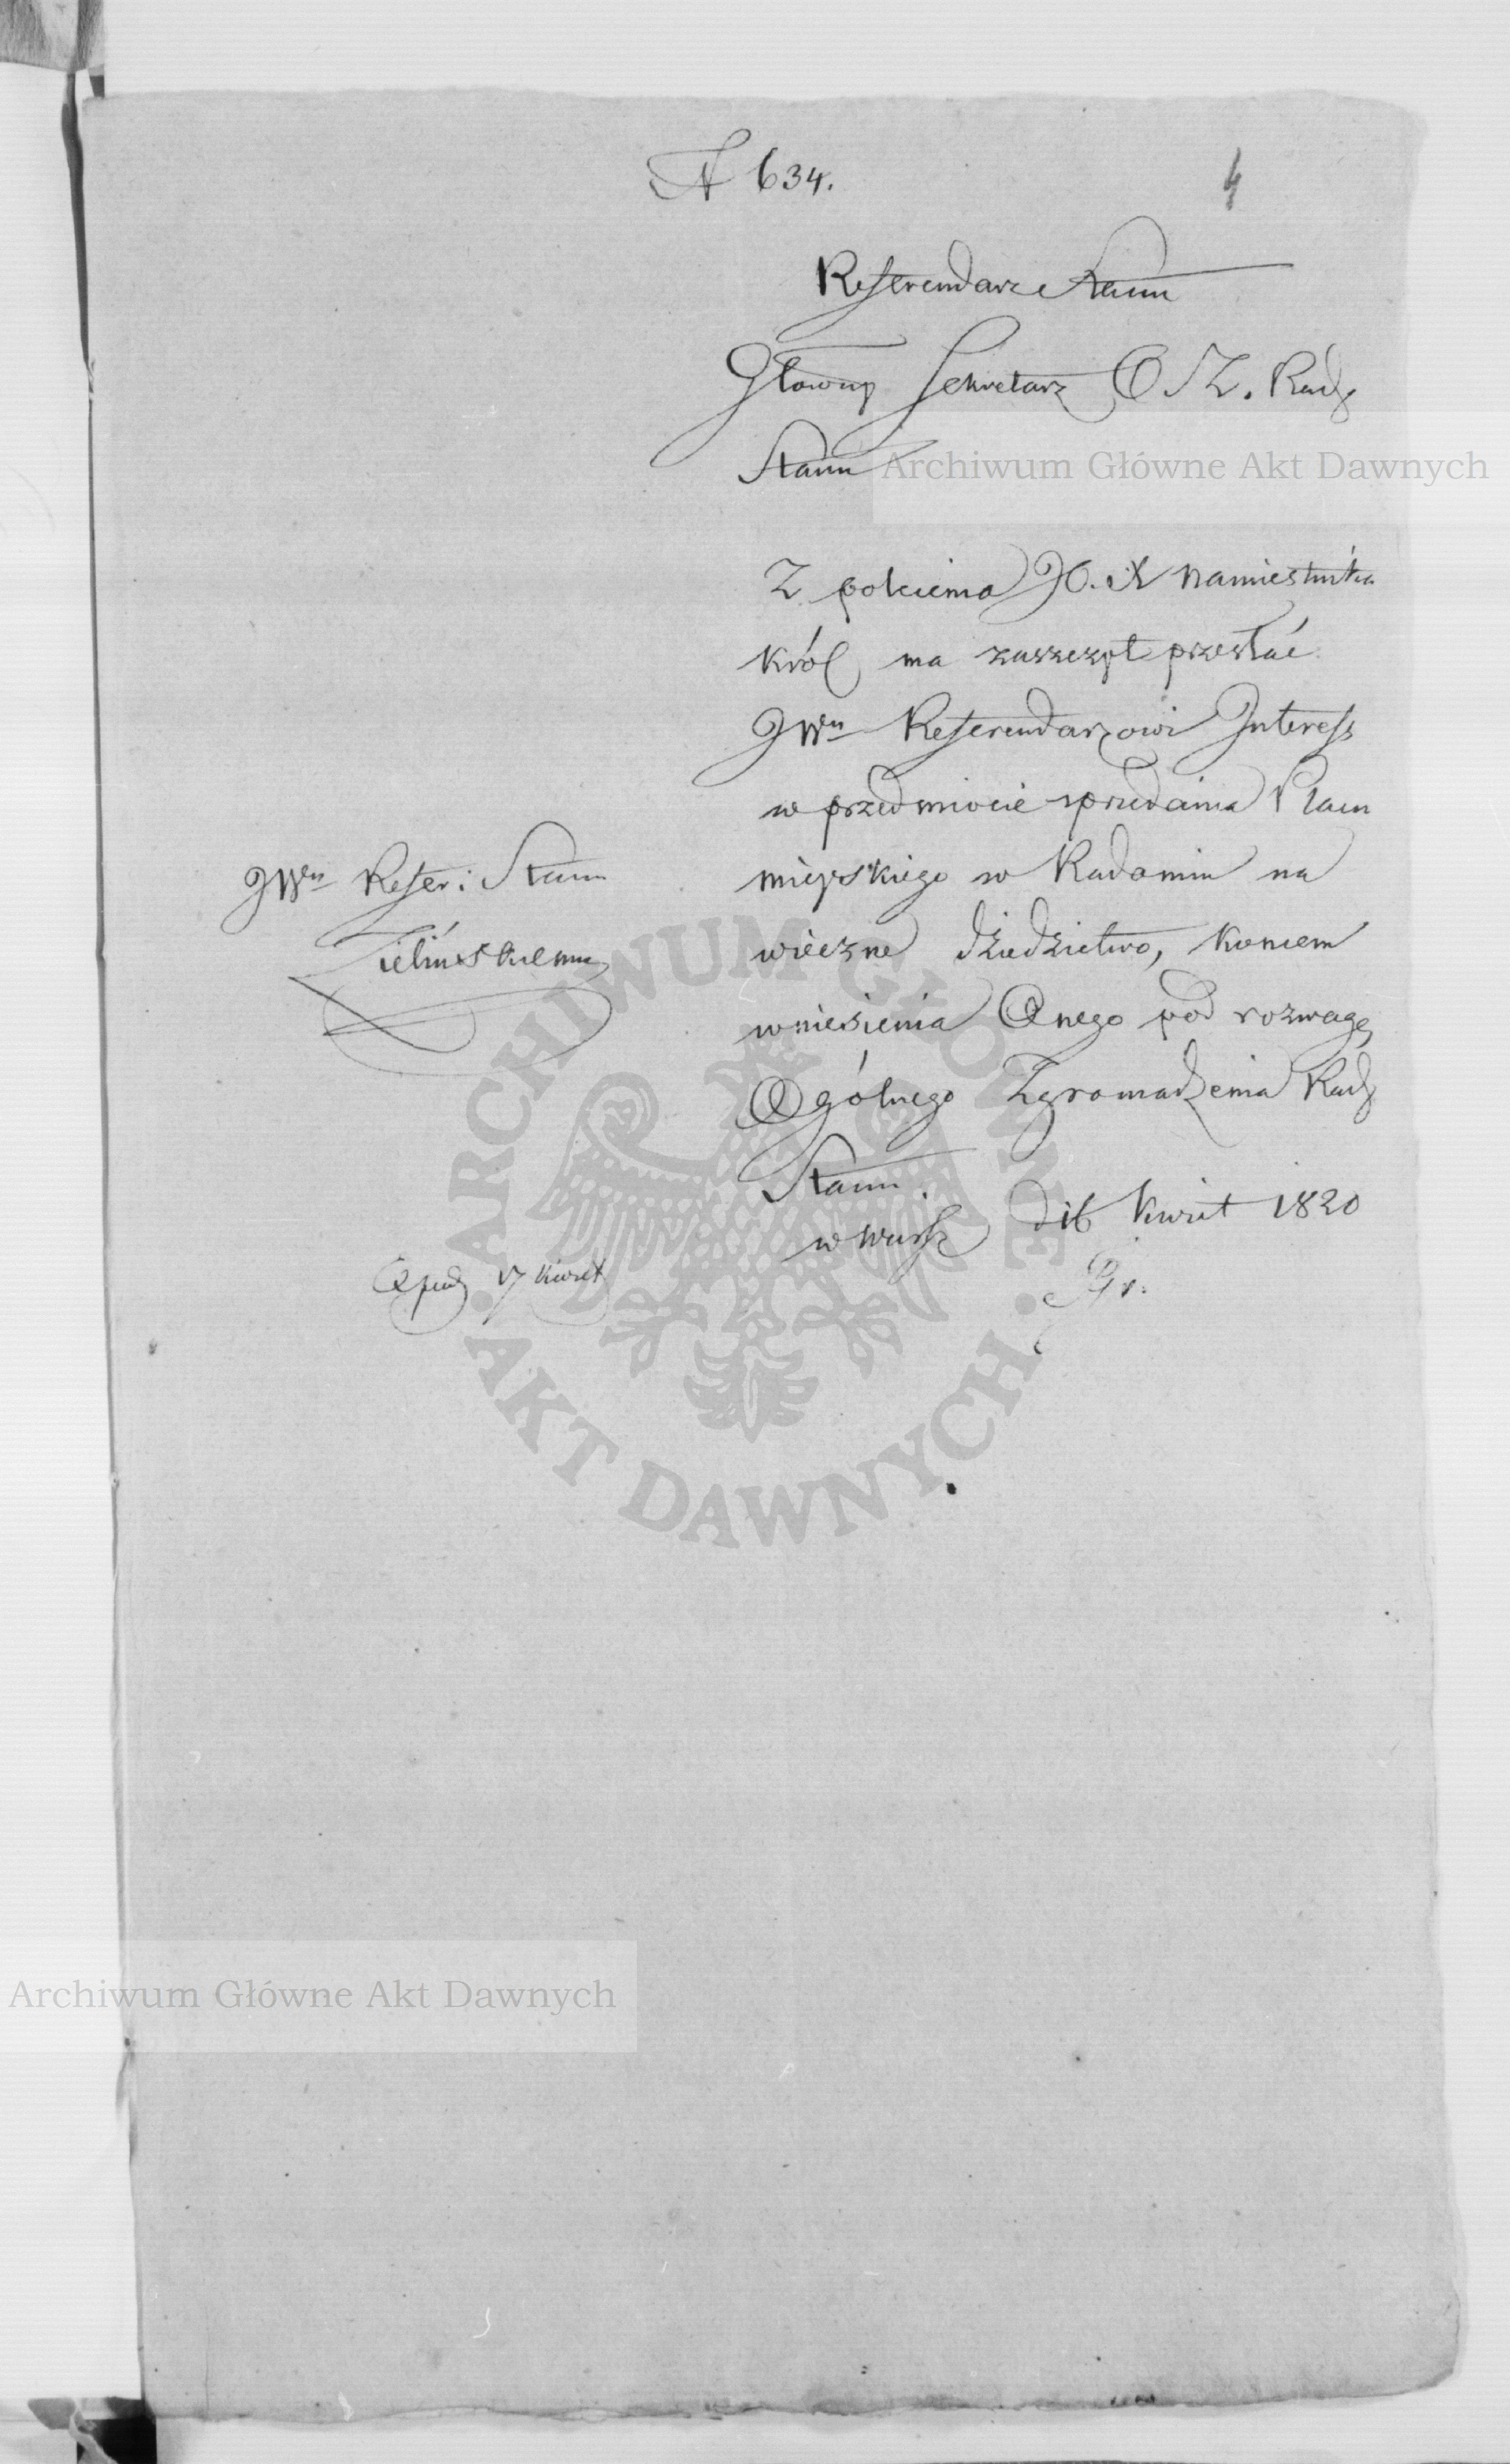 N 634.
4
Referendarz Stanu
Głowny Sekretarz O Z. Rady
Stanu
Z polecenia JO. X Namiestnika
Król ma zaszczyt przesłać
JWu Referendarzowi Interess
w przedmiocie sprzedania Placu
mieyskiego w Radomiu na
wieczne dziedzictwo, koncem
wniesienia Onego pod rozwagę
Ogólnego Zgromadzenia Rady
Stanu.
w Warsz d 16 Kwiet 1820
JWu Refer: Stanu
Zielińskiemu
17 Kwiet
Archiwum Główne Akt Dawnych
ARCHIWUM GŁÓWNE
AKT DAWNYCH
Archiwum Główne Akt Dawnych